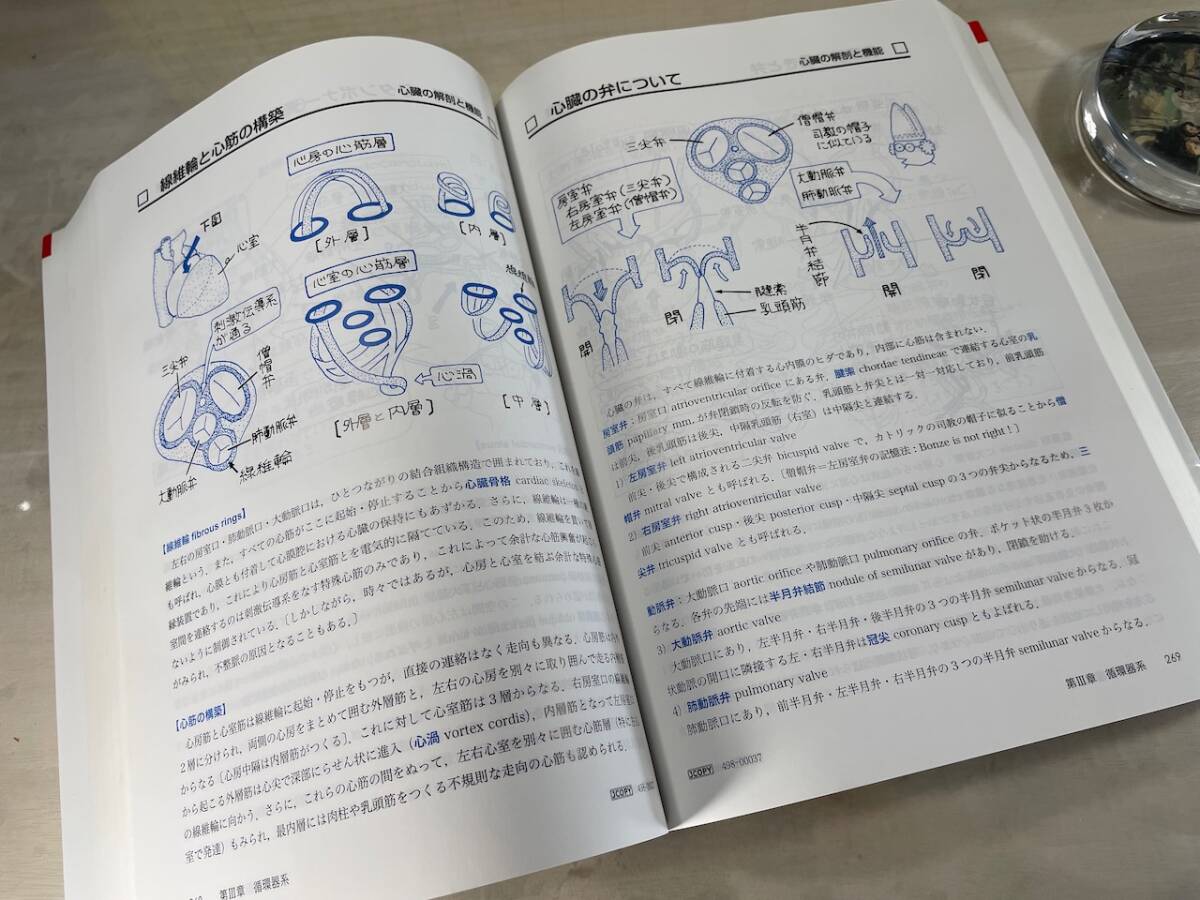 線維輪と心筋の構築
心臓の解剖と機能
下図
心室
心房の心筋層
[外層]
[内層]
刺激伝導系
が通る
心室の心筋層
線維
三尖弁
僧帽弁
肺動脈弁
線維輪
大動脈弁
心渦
[外層と内層]
[中層]
【線維輪 fibrous rings】
左右の房室口・肺動脈口・大動脈口は、ひとつながりの結合組織構造で囲まれており、これを線
維輪という。また、すべての心筋がここに起始・停止することから心臓骨格 cardiac skeleton
も呼ばれ、心膜とも付着して心膜腔における心臓の保持にもあずかる。さらに、線維輪は一種の
縁装置であり、これにより心房筋と心室筋とを電気的に隔てている。このため、線維輪を貫いて
室間を連絡するのは刺激伝導系をなす特殊心筋のみであり、これによって余計な心筋興奮が起こ
ないように制御されている。〔しかしながら、時々ではあるが、心房と心室を結ぶ余計な特殊心
がみられ、不整脈の原因となることもある。〕
【心筋の構築】
心房筋と心室筋は線維輪に起始・停止をもつが、直接の連絡はなく走向も異なる。心房筋は内外
2層に分けられ、両側の心房をまとめて囲む外層筋と、左右の心房を別々に取り囲んで走る内層
からなる〔心房中隔は内層筋がつくる〕。これに対して心室筋は3層からなる。右房室口の線維輪
から起こる外層筋は心尖で深部にらせん状に進入(心渦 vortex cordis)、内層筋となって左房室口
の線維輪に向かう。さらに、これらの心筋の間をぬって、左右心室を別々に囲む心筋層(特に左
室で発達)もみられ、最内層には肉柱や乳頭筋をつくる不規則な走向の心筋も認められる。
JCOPY
第Ⅲ章 循環器系
心臓の弁について
心臓の解剖と機能
三尖弁
僧帽弁
司教の帽子
に似ている
房室弁
右房室弁(三尖弁)
左房室弁(僧帽弁)
大動脈弁
肺動脈弁
半月弁結節
腱索
乳頭筋
開
閉
開
閉
心臓の弁は、すべて線維輪に付着する心内膜のヒダであり、内部に心筋は含まれない。
房室弁:房室口 atrioventricular orifice にある弁。腱索 chordae tendineae で連結する心室の乳
頭筋 papillary mm. が弁閉鎖時の反転を防ぐ。乳頭筋と弁尖とは一対一対応しており、前乳頭筋
は前尖、後乳頭筋は後尖、中隔乳頭筋(右室)は中隔尖と連結する。
1) 左房室弁 left atrioventricular valve
前尖・後尖で構成される二尖弁 bicuspid valve で、カトリックの司教の帽子に似ることから僧
帽弁 mitral valve とも呼ばれる。〔僧帽弁=左房室弁の記憶法:Bonze is not right!〕
2) 右房室弁 right atrioventricular valve
前尖 anterior cusp・後尖 posterior cusp・中隔尖 septal cusp の3つの弁尖からなるため、三
尖弁 tricuspid valve とも呼ばれる。
動脈弁:大動脈口 aortic orifice や肺動脈口 pulmonary orifice の弁。ポケット状の半月弁3枚か
らなる。各弁の先端には半月弁結節 nodule of semilunar valve があり、閉鎖を助ける。
3) 大動脈弁 aortic valve
大動脈口にあり、左半月弁・右半月弁・後半月弁の3つの半月弁 semilunar valve からなる。冠
状動脈の開口に隣接する左・右半月弁は冠尖 coronary cusp ともよばれる。
4) 肺動脈弁 pulmonary valve
肺動脈口にあり、前半月弁・左半月弁・右半月弁の3つの半月弁 semilunar valve からなる。
JCOPY 498-00037
第Ⅲ章 循環器系 269